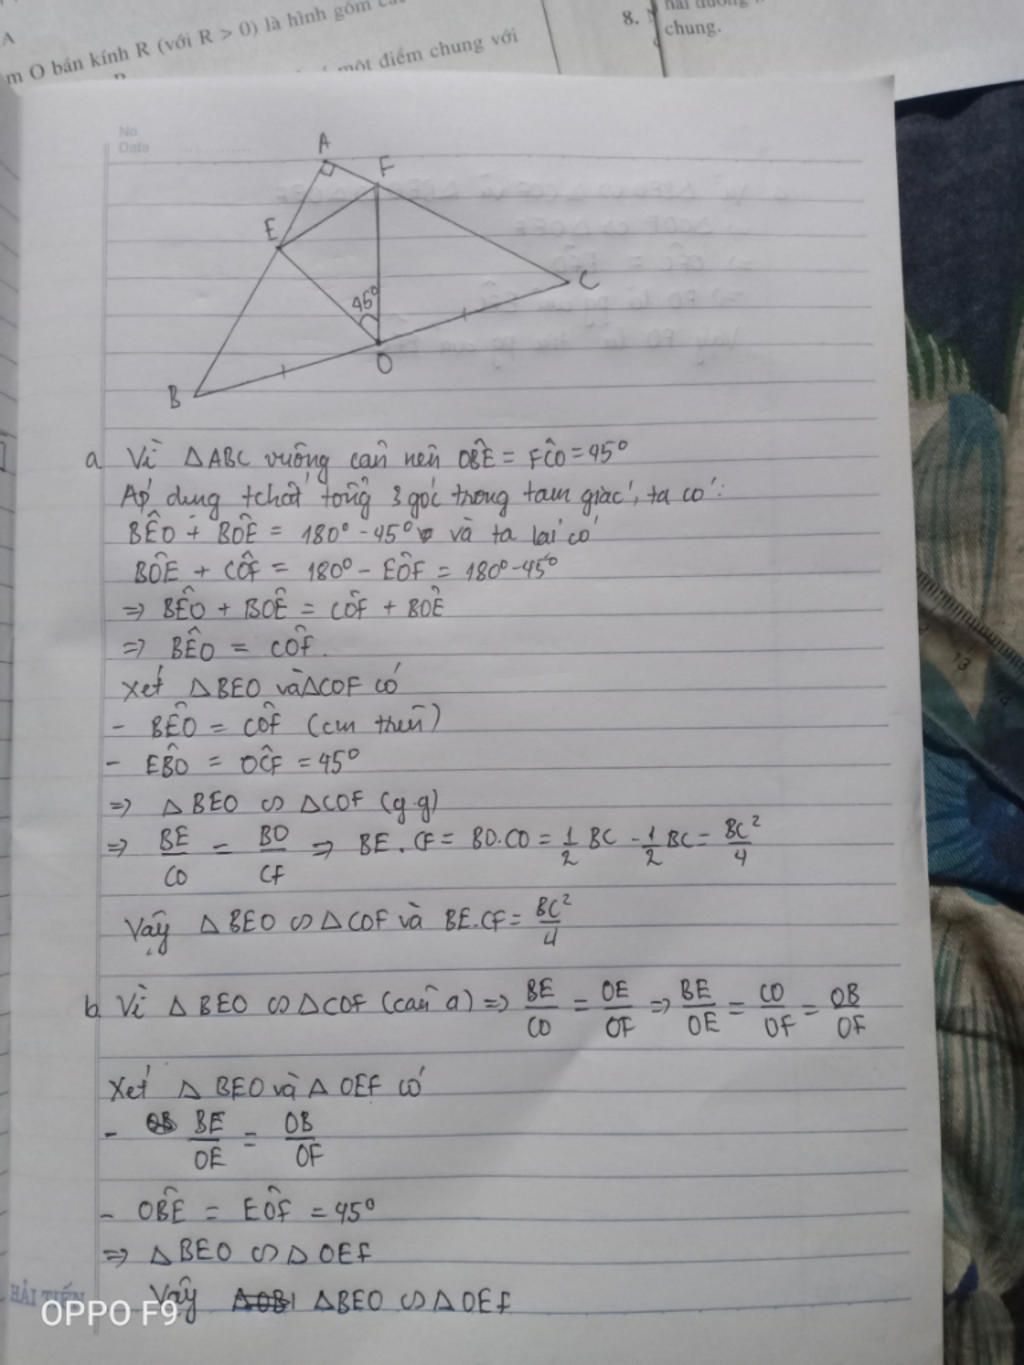 A
m O bán kính R (với R > 0) là hình gồm
một điểm chung với
8.
chung.
No
Date
A
F
E
45°
C
O
B
a Vì ΔABC vuông cân nên OB̂E = FĈO = 45°
Áp dụng tchất tổng 3 góc trong tam giác, ta có:
BÊO + BÔE = 180° - 45° và ta lại có
BÔE + CÔF = 180° - EÔF = 180° - 45°
=> BÊO + BÔE = CÔF + BÔE
=> BÊO = CÔF.
Xét ΔBEO và ΔCOF có
- BÊO = CÔF (cm trên)
- EB̂O = OĈF = 45°
=> ΔBEO ∽ ΔCOF (g.g)
=> BE/CO = BO/CF => BE. CF = BO.CO = 1/2 BC - 1/2 BC = BC²/4
Vậy ΔBEO ∽ ΔCOF và BE.CF = BC²/4
b. Vì ΔBEO ∽ ΔCOF (câu a) => BE/CO = OE/OF => BE/OE = CO/OF = OB/OF
Xét ΔBEO và ΔOEF có
- BE/OE = OB/OF
- OB̂E = EÔF = 45°
=> ΔBEO ∽ ΔOEF
Vậy ΔBEO ∽ ΔOEF
HẢI TIẾN
OPPO F9